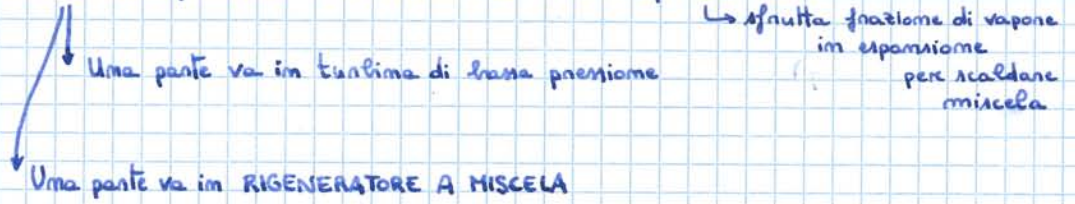 ↳ sfrutta frazione di vapore
in espansione
per scaldare
miscela
Una parte va in turbina di bassa pressione
Una parte va in RIGENERATORE A MISCELA